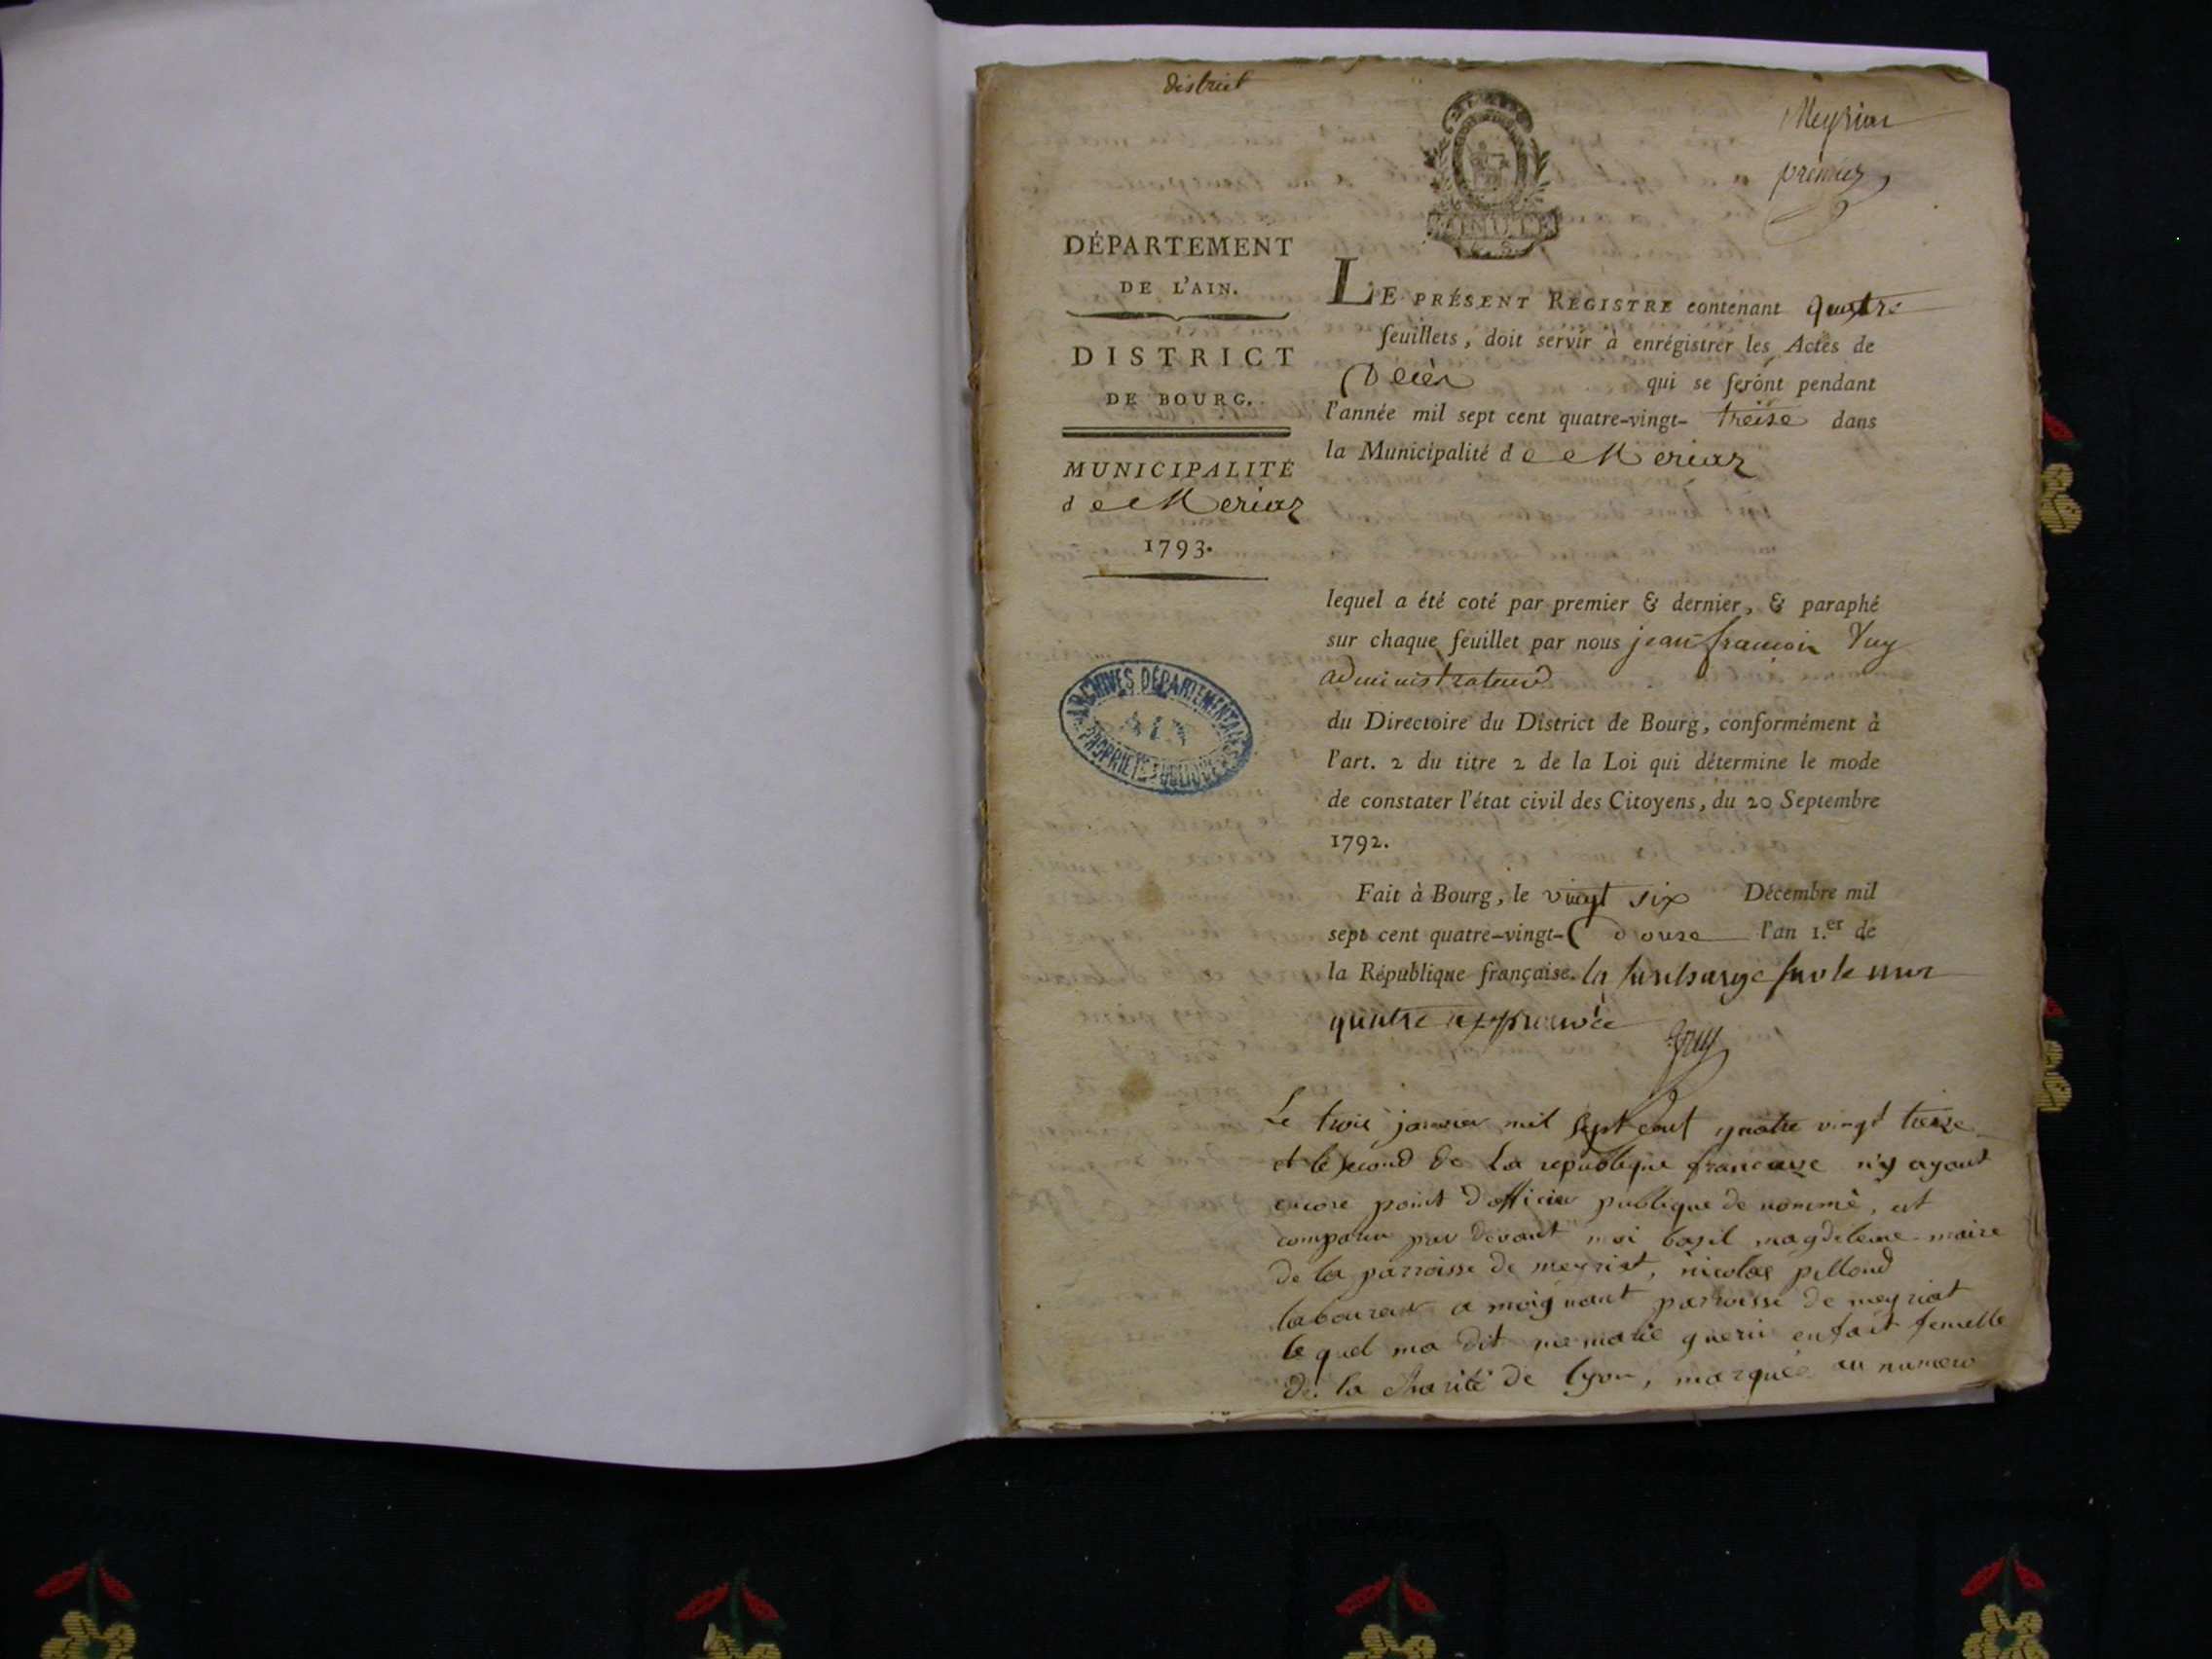 district
premier
DÉPARTEMENT
DE L'AIN.
DISTRICT
DE BOURG.
MUNICIPALITÉ
de Meriaz
1793.
ARCHIVES DÉPARTEMENTALES
AIN
PROPRIÉTÉ PUBLIQUE
LE PRÉSENT REGISTRE contenant quatre
feuillets, doit servir à enrégistrer les Actes de
Décès qui se feront pendant
l'année mil sept cent quatre-vingt- treise dans
la Municipalité de Meriaz
lequel a été coté par premier & dernier, & paraphé
sur chaque feuillet par nous jean francois
administrateur
du Directoire du District de Bourg, conformément à
l'art. 2 du titre 2 de la Loi qui détermine le mode
de constater l'état civil des Citoyens, du 20 Septembre
1792.
Fait à Bourg, le vingt six Décembre mil
sept cent quatre-vingt- douse l'an 1.er de
la République française. la surcharge sur le mot
quatre approuvée
Le trois janvier mil sept cent quatre vingt treize
et le second de La republique francaise n'y ayant
encore point d'officier publique de nommé, est
comparu par devant moi basil magdeleine maire
de la parroisse de meyriat, nicolas pillond
laboureur a moignant parroisse de meyriat
le quel ma dit marie guerin enfait femelle
de la charité de lyon, marquée au numero